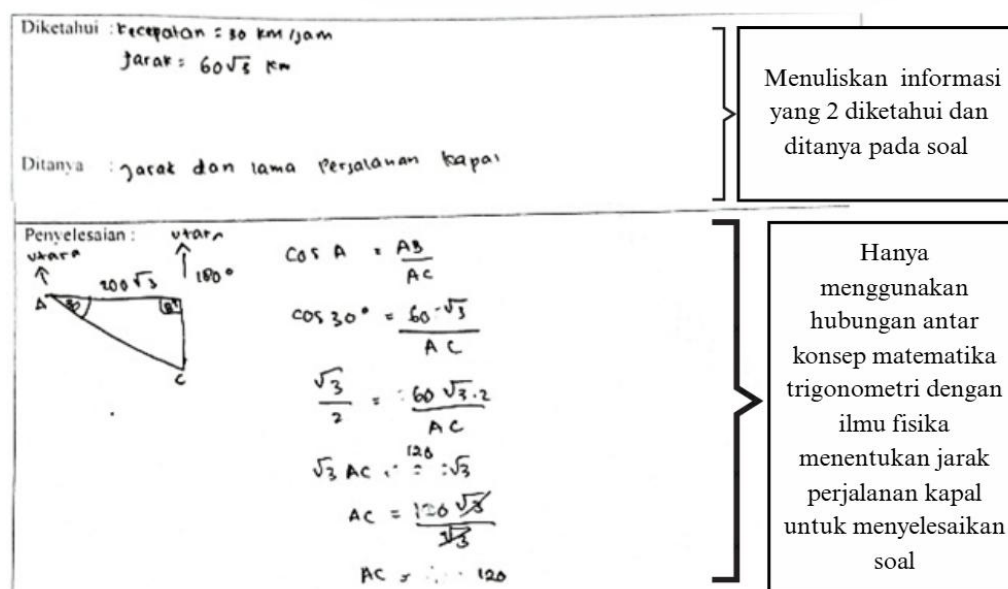 Diketahui : kecepatan = 30 km/jam
Jarak = 60√3 km
Ditanya : Jarak dan lama Perjalanan kapal
Menuliskan informasi
yang 2 diketahui dan
ditanya pada soal
Penyelesaian :
utara
utara
180°
200√3
A
30
B
C
Cos A = AB / AC
Cos 30° = 60√3 / AC
√3 / 2 = 60√3.2 / AC
√3 AC = 120 √3
AC = 120√3 / √3
AC = 120
Hanya
menggunakan
hubungan antar
konsep matematika
trigonometri dengan
ilmu fisika
menentukan jarak
perjalanan kapal
untuk menyelesaikan
soal